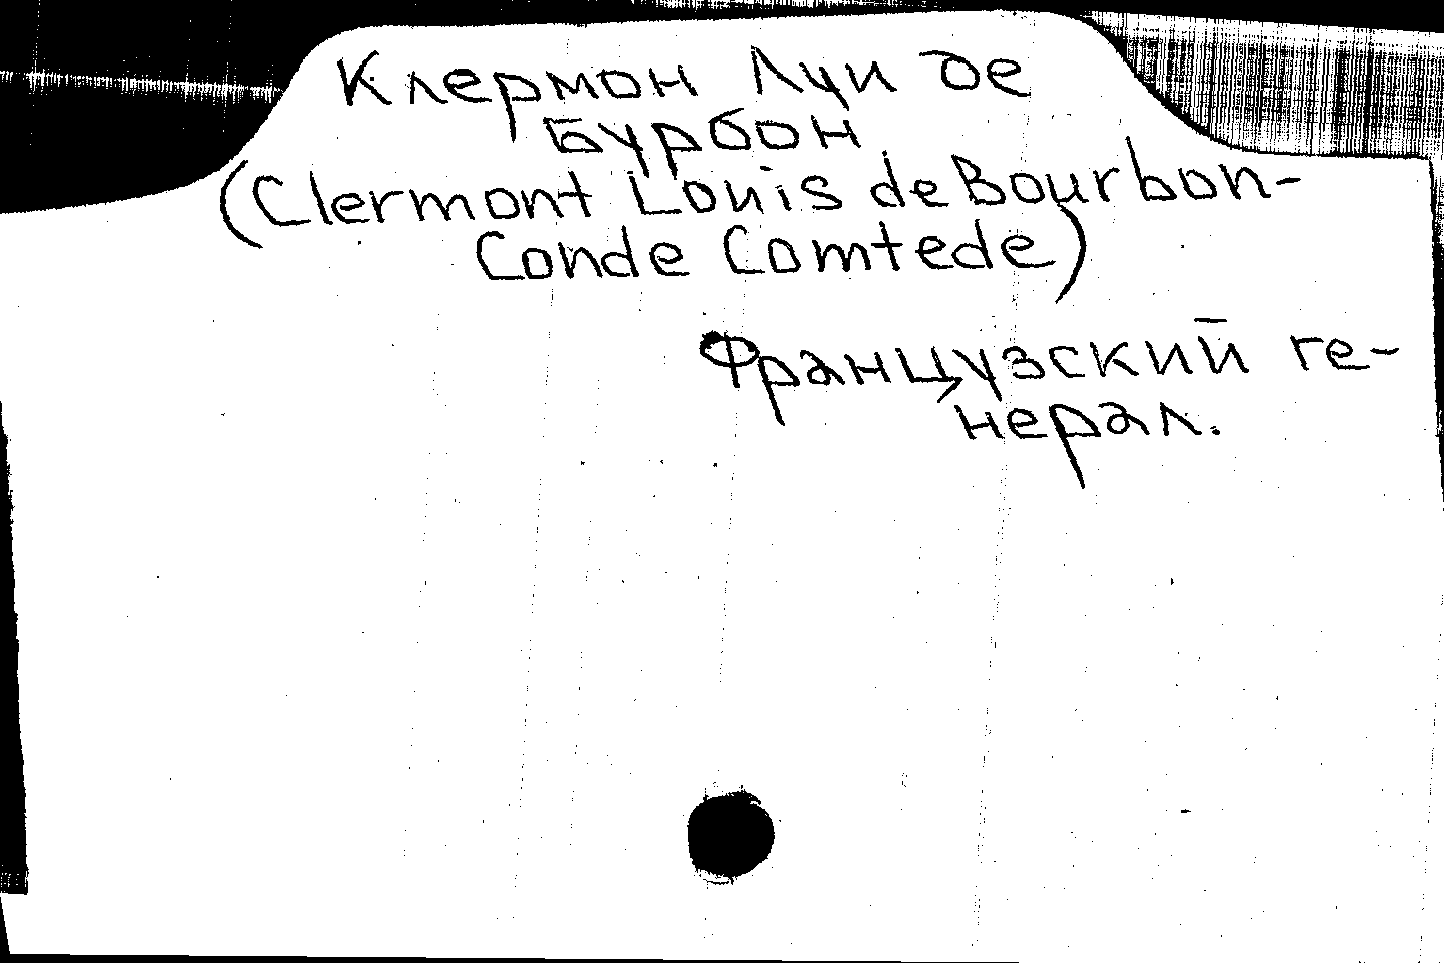 Клермон Луи де
Бурбон
(Clermont Louis de Bourbon-
Conde Comtede)
Французский ге-
нерал.